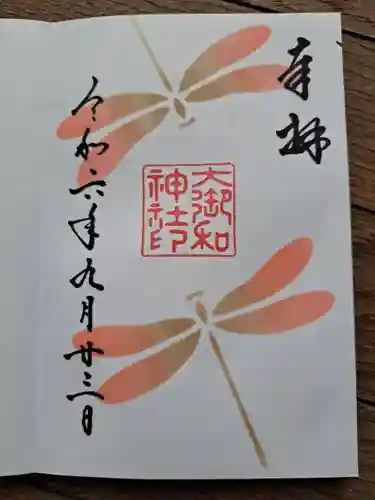 奉拝
大御和
神社印
令和六年九月廿三日